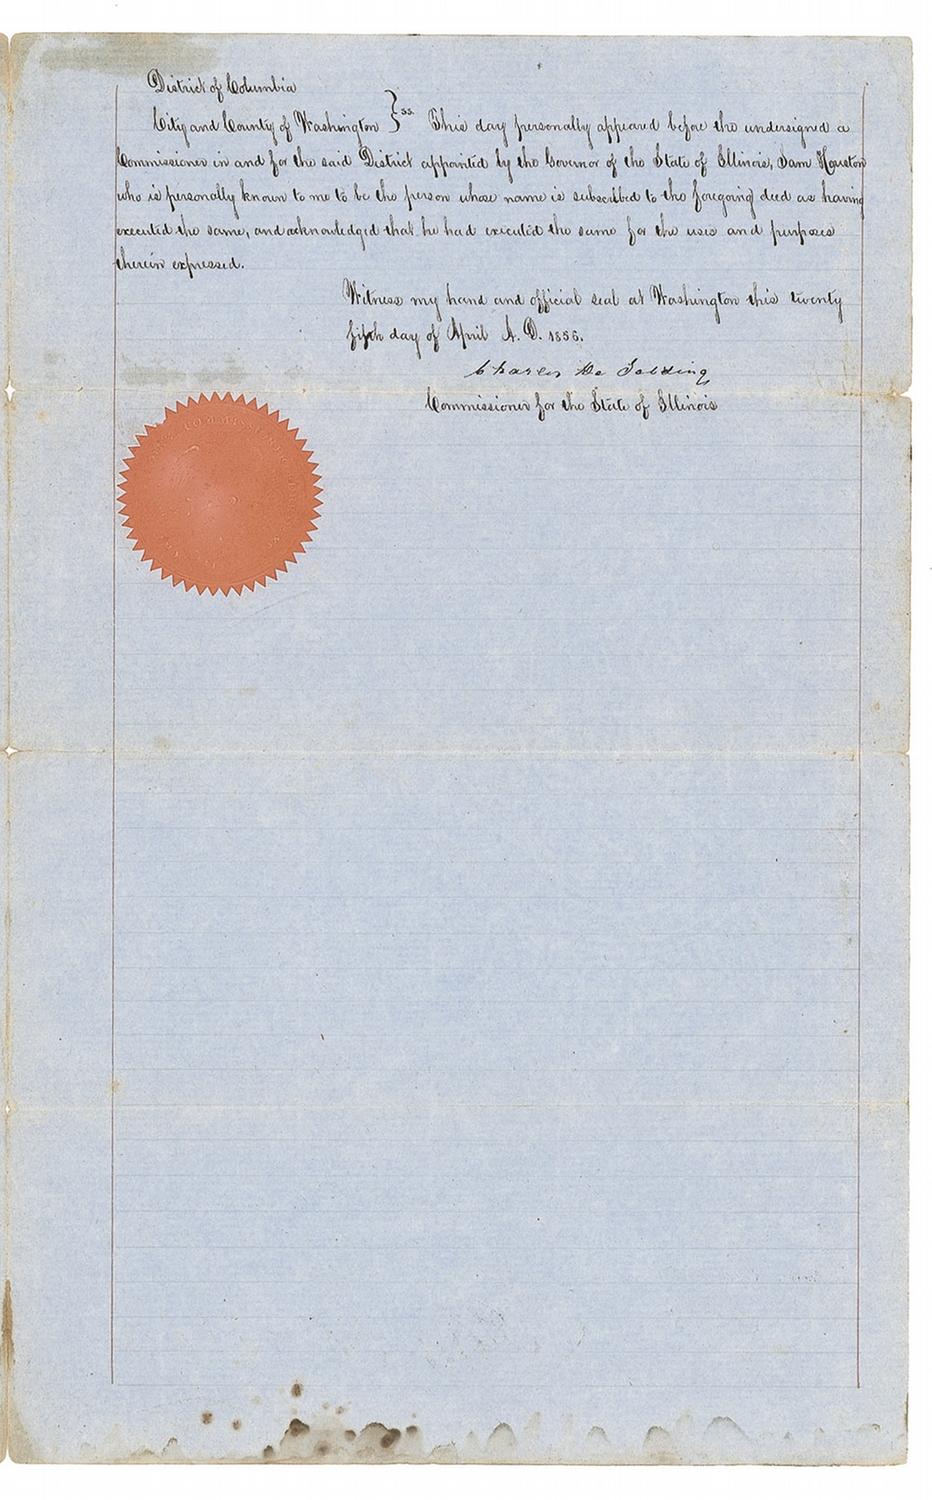 District of Columbia
City and County of Washington } ss. This day personally appeared before the undersigned a
Commissioner in and for the said District appointed by the Governor of the State of Illinois, Sam Houston
who is personally known to me to be the person whose name is subscribed to the foregoing deed as having
executed the same, and acknowledged that he had executed the same for the uses and purposes
therein expressed.
Witness my hand and official seal at Washington this twenty
fifth day of April A. D. 1856.
Charles De Selding
Commissioner for the State of Illinois